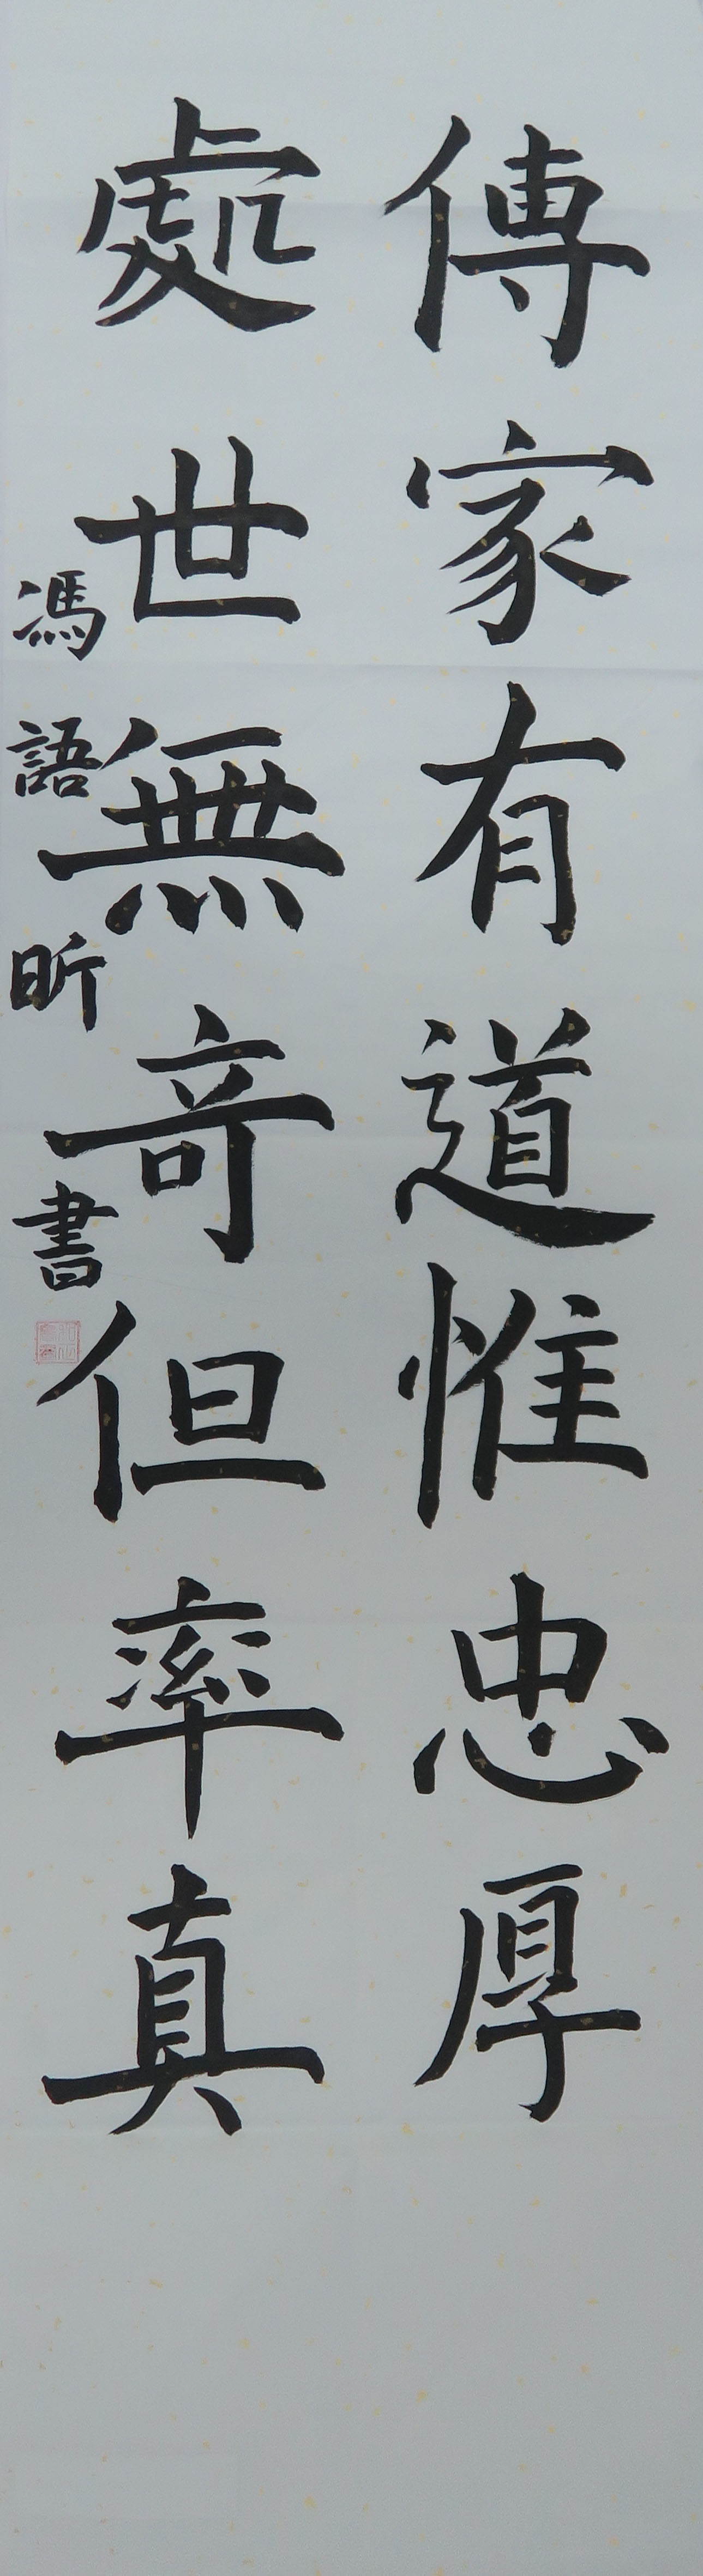 傳家有道惟忠厚
處世無奇但率真
馮語昕書